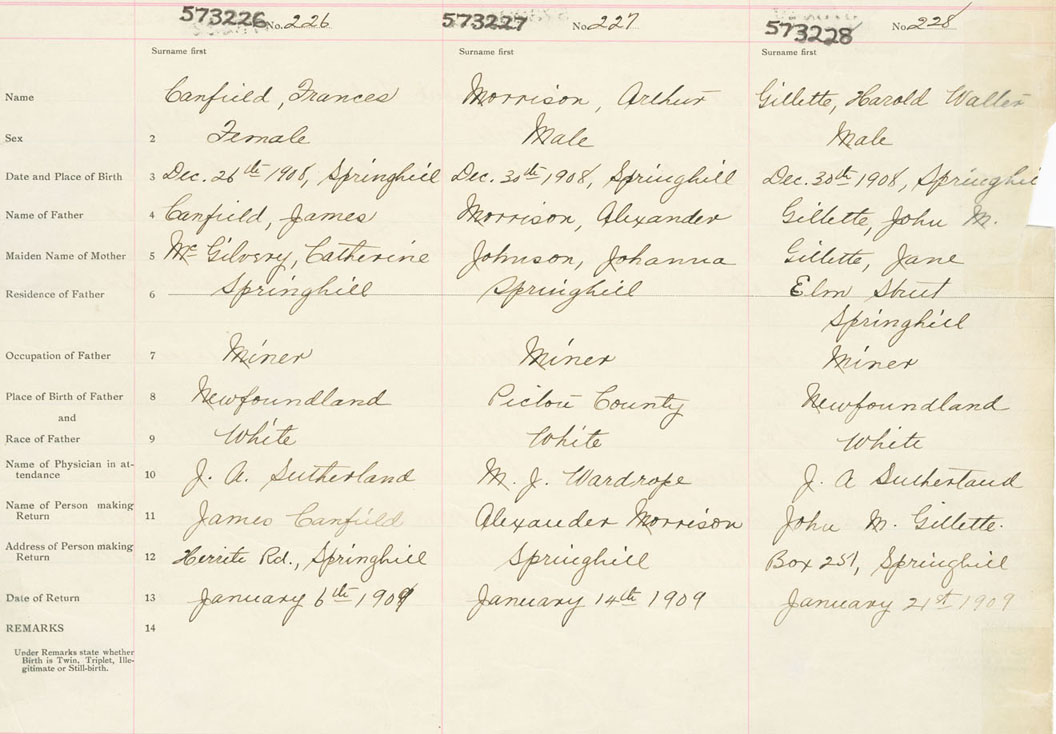 573226 No. 226 573227 No. 227 573228 No. 228
Surname first Surname first Surname first
Name Canfield, Frances Morrison, Arthur Gillette, Harold Walter
Sex 2 Female Male Male
Date and Place of Birth 3 Dec. 26th 1908, Springhill Dec. 30th 1908, Springhill Dec. 30th 1908, Springhi
Name of Father 4 Canfield, James Morrison, Alexander Gillette, John M.
Maiden Name of Mother 5 Mc Gilvery, Catherine Johnson, Johanna Gillette, Jane
Residence of Father 6 Springhill Springhill Elm Street
Springhill
Occupation of Father 7 Miner Miner Miner
Place of Birth of Father 8 Newfoundland Pictou County Newfoundland
and
Race of Father 9 White White White
Name of Physician in at-
tendance 10 J. A. Sutherland M. J. Wardrope J. A Sutherland
Name of Person making
Return 11 James Canfield Alexander Morrison John M. Gillette.
Address of Person making
Return 12 Herrite Rd., Springhill Springhill Box 251, Springhill
Date of Return 13 January 6th 1909 January 14th 1909 January 21st 1909
REMARKS 14
Under Remarks state whether
Birth is Twin, Triplet, Ille-
gitimate or Still-birth.